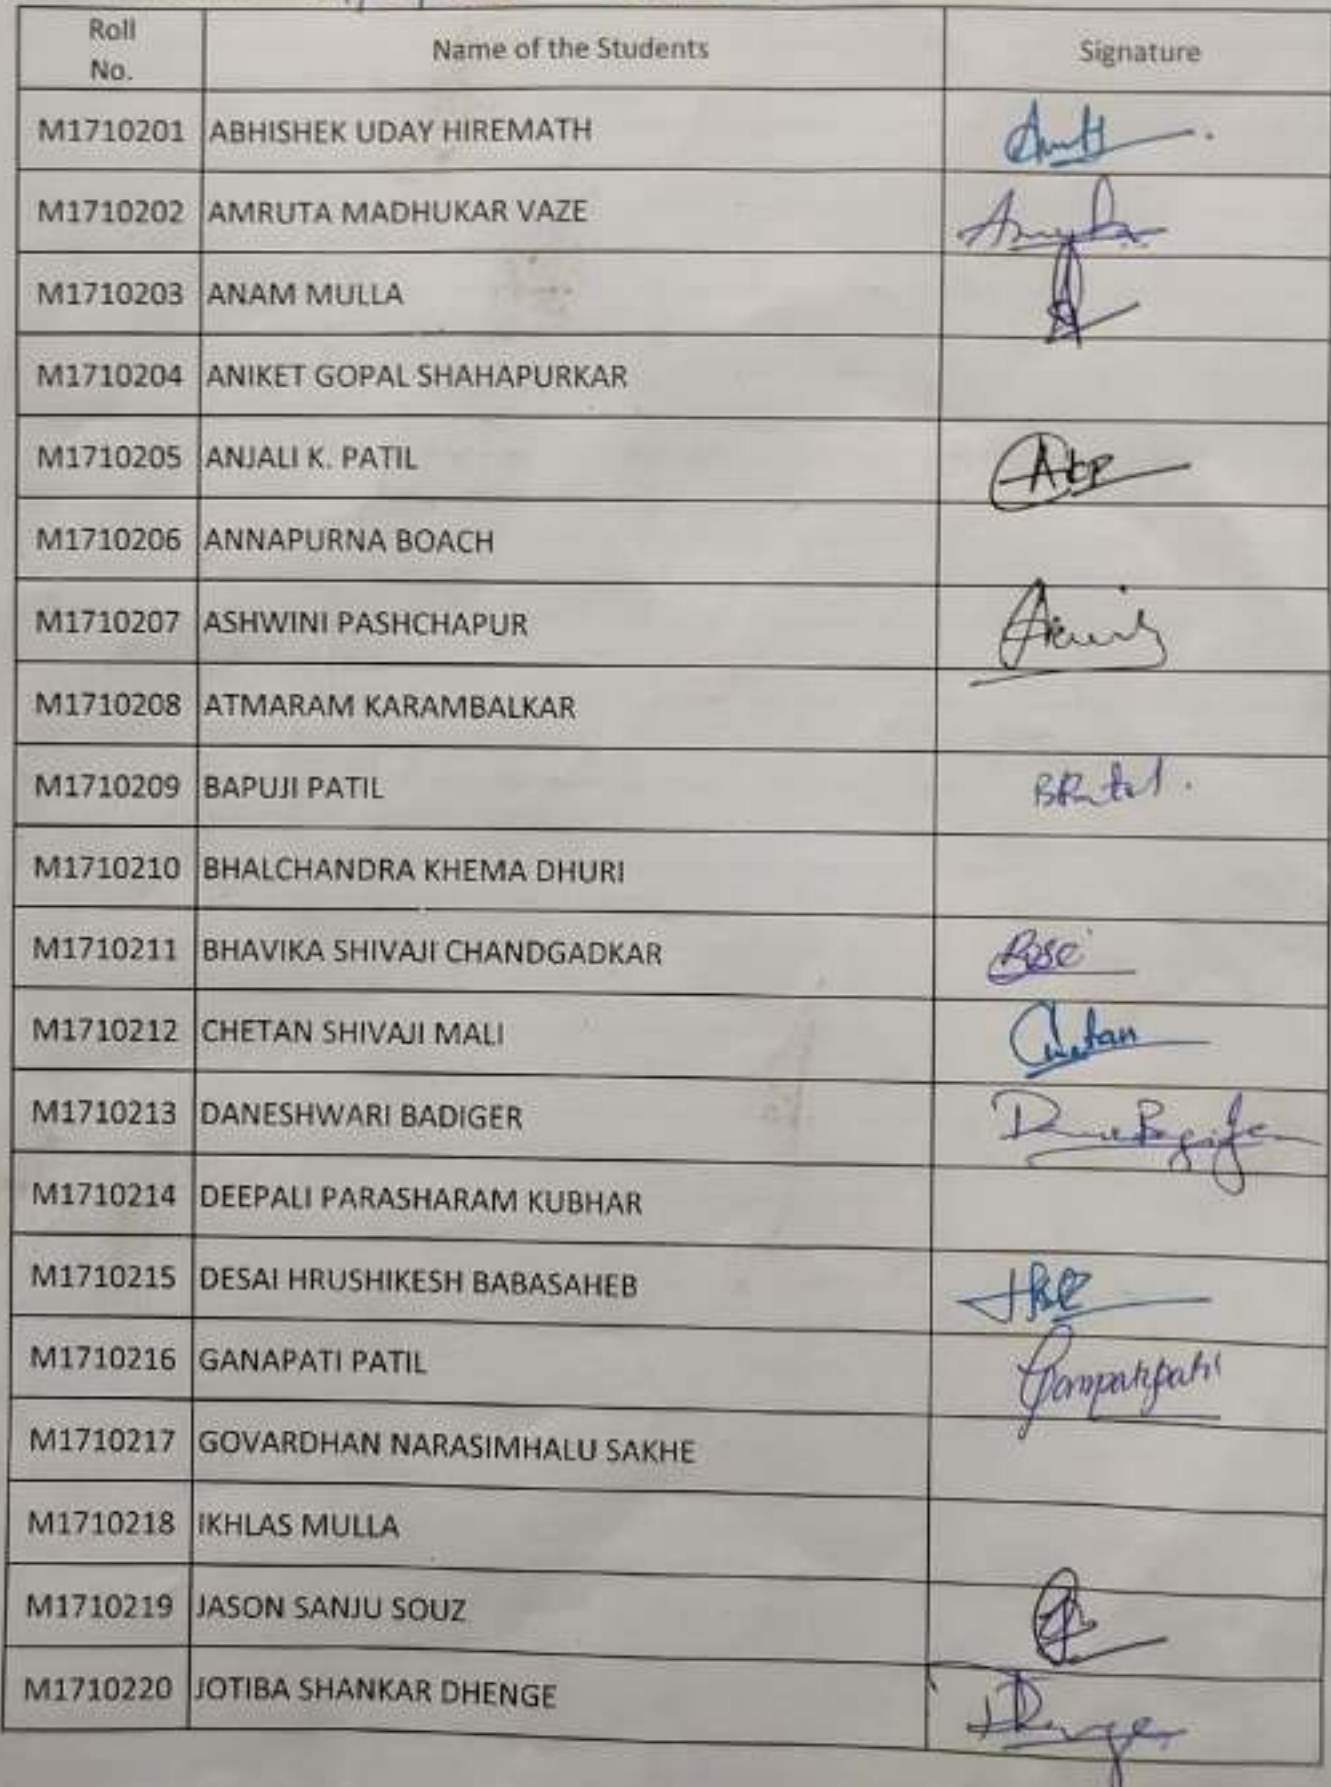 Roll No. Name of the Students Signature
M1710201 ABHISHEK UDAY HIREMATH
M1710202 AMRUTA MADHUKAR VAZE
M1710203 ANAM MULLA
M1710204 ANIKET GOPAL SHAHAPURKAR
M1710205 ANJALI K. PATIL AKP
M1710206 ANNAPURNA BOACH
M1710207 ASHWINI PASHCHAPUR
M1710208 ATMARAM KARAMBALKAR
M1710209 BAPUJI PATIL
M1710210 BHALCHANDRA KHEMA DHURI
M1710211 BHAVIKA SHIVAJI CHANDGADKAR
M1710212 CHETAN SHIVAJI MALI Chetan
M1710213 DANESHWARI BADIGER
M1710214 DEEPALI PARASHARAM KUBHAR
M1710215 DESAI HRUSHIKESH BABASAHEB
M1710216 GANAPATI PATIL
M1710217 GOVARDHAN NARASIMHALU SAKHE
M1710218 IKHLAS MULLA
M1710219 JASON SANJU SOUZ
M1710220 JOTIBA SHANKAR DHENGE